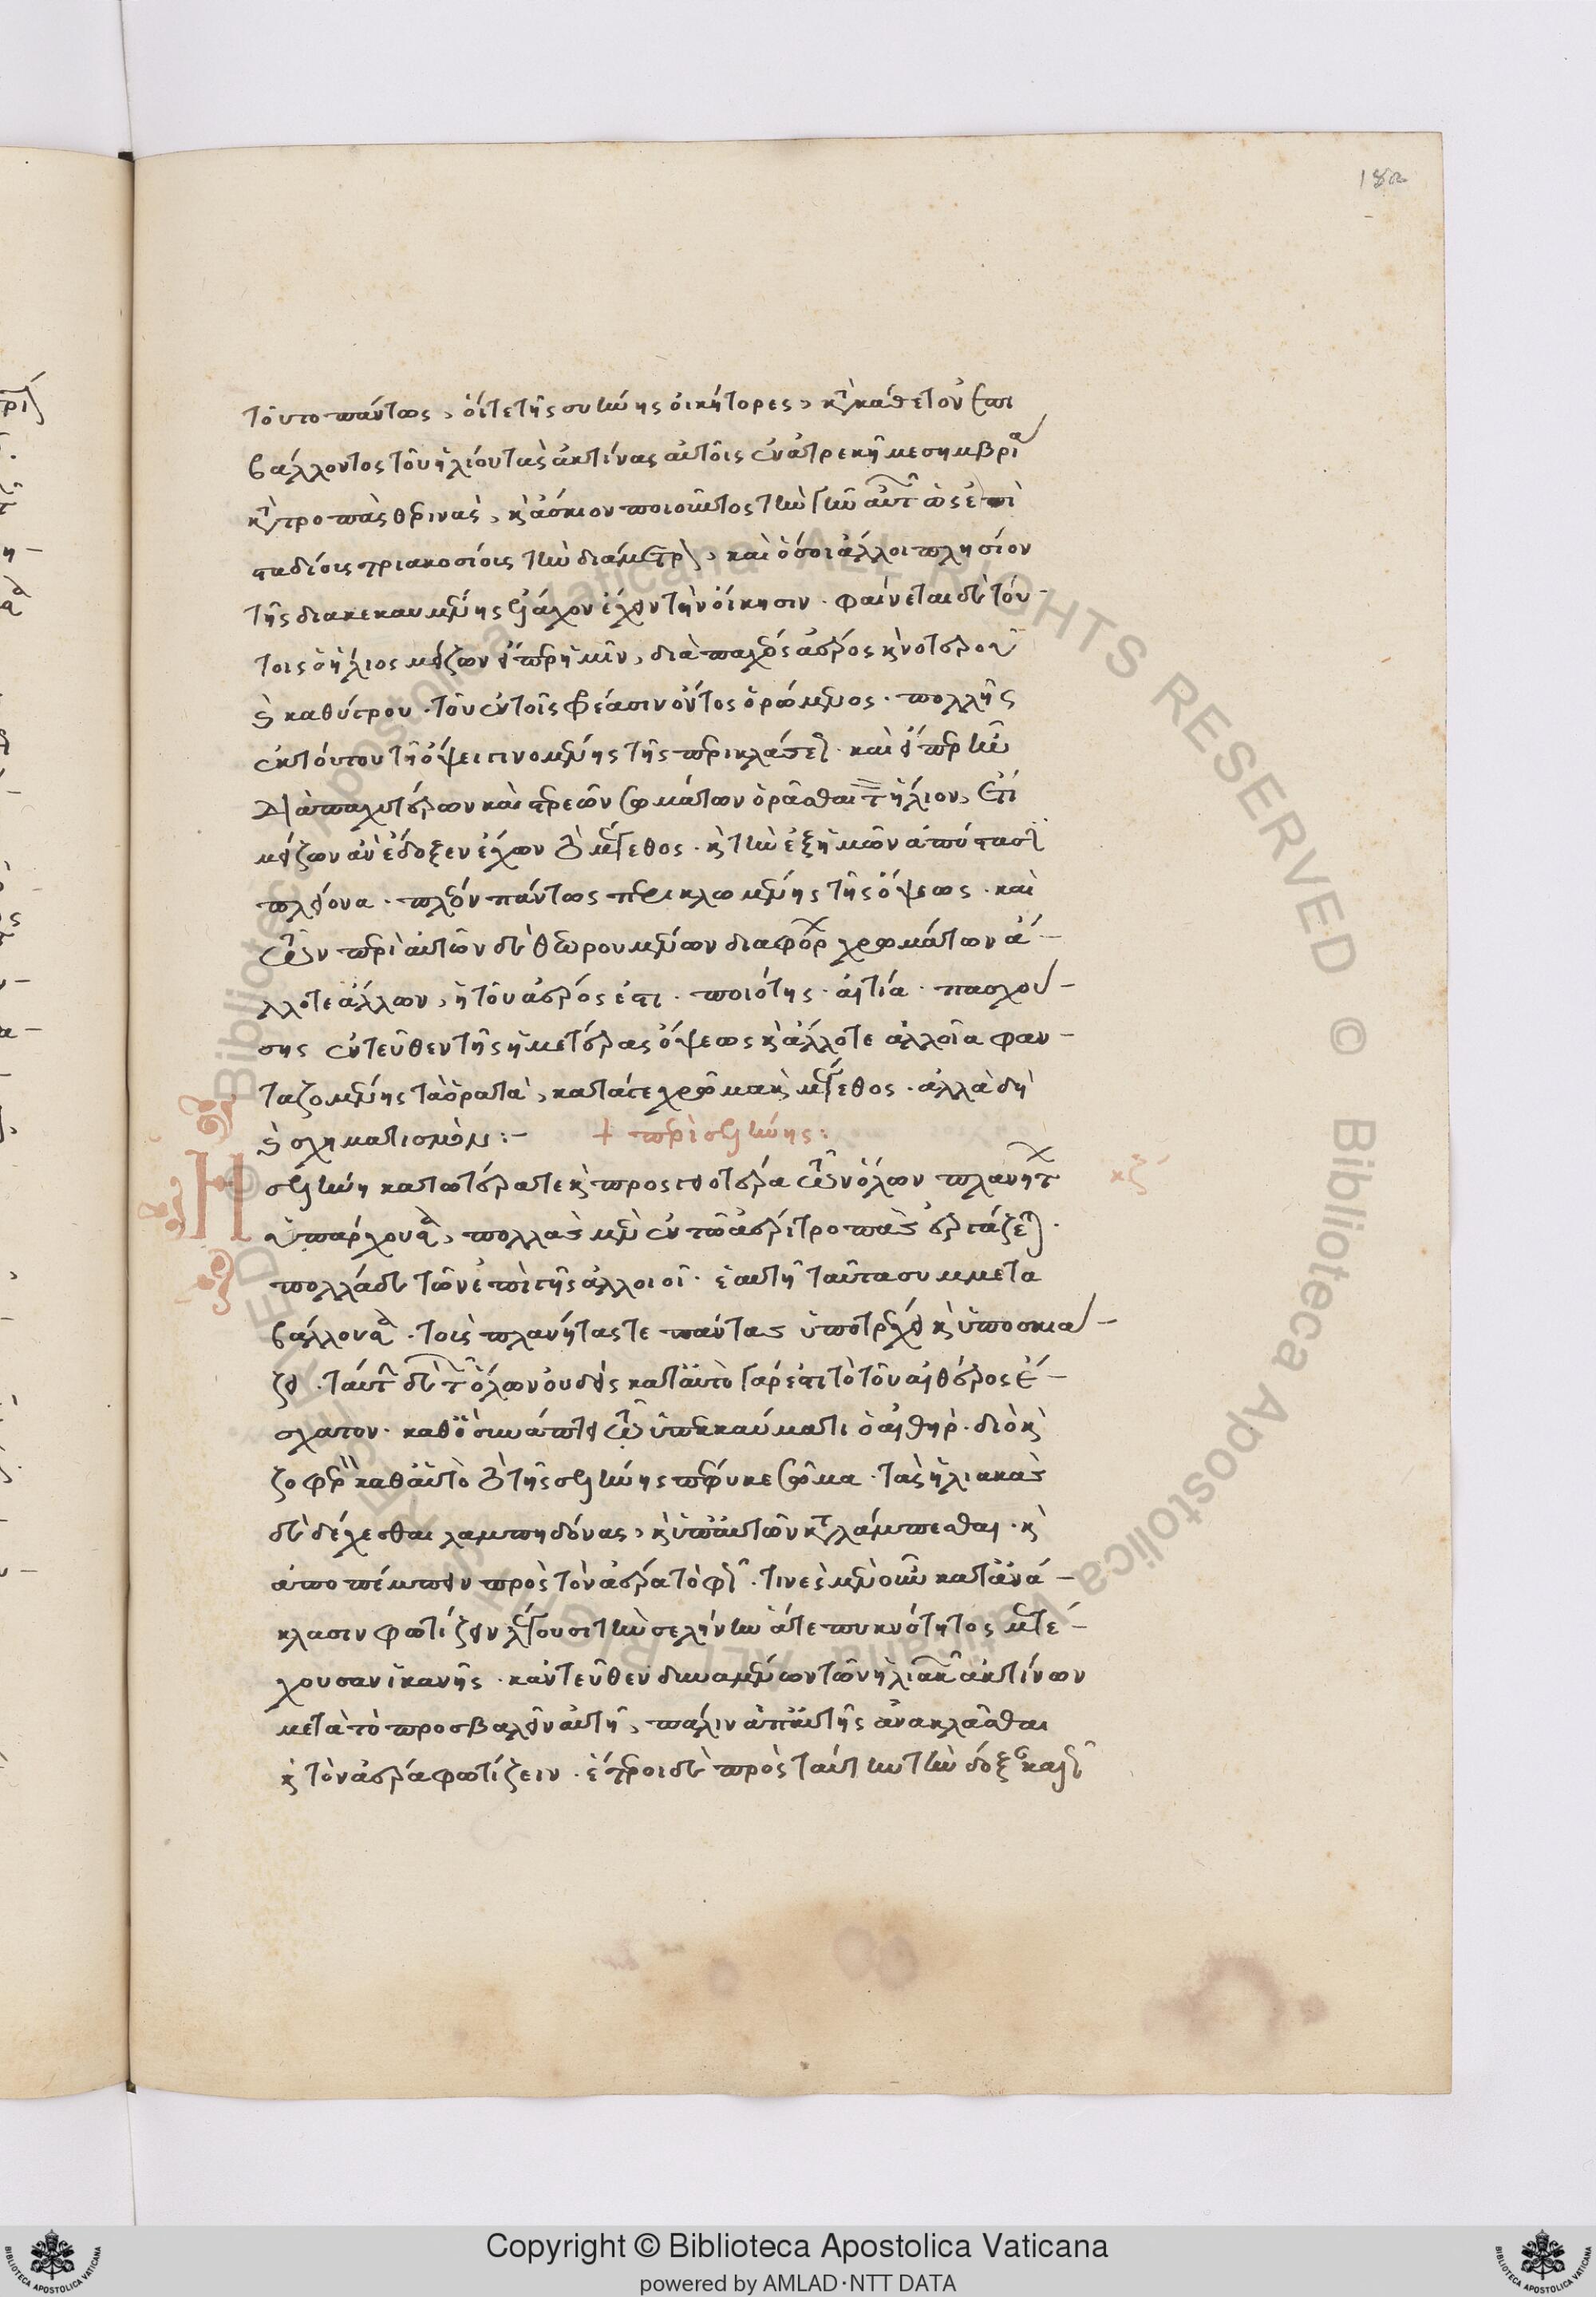 182
τοῦτο πάντως, οἵτε τῆς συήνης οἰκήτορες, κατὰ κάθετον ἐπι
βάλλοντος τοῦ ἡλίου τὰς ἀκτίνας αὐτοῖς ἐν ἀτρεκῆ μεσημβρία
κατὰ τροπὰς θερινὰς, καὶ ἄσκιον ποιοῦντος τὴν γῆν αὐτῶν ὡς ἐπὶ
σταδίοις τριακοσίοις τὴν διάμετρον, καὶ ὅσοι ἄλλοι πλησίον
τῆς διακεκαυμένης ἔλαχον ἔχειν τὴν οἴκησιν. φαίνεται δὲ τού-
τοις ὁ ἥλιος μείζων ἤπερ ἡμῖν, διὰ παχέος ἀέρος καὶ νοτεροῦ
καὶ καθύγρου. τοῦ ἐν τοῖς φρέασιν ὄντος ὁρώμενος. πολλῆς
ἐκ τούτου τῇ ὄψει γινομένης τῆς περικλάσεως. καὶ εἴπερ ἦν
διὰ παχυτέρων καὶ στερεῶν σωμάτων ὁρᾶσθαι τὸν ἥλιον, ἔτι
μείζων ἂν ἔδοξεν ἔχων τὸ μέγεθος. καὶ τὴν ἐξ ἡμῶν ἀπόστασιν
πλείονα. πλέον πάντως περικλωμένης τῆς ὄψεως. καὶ
τῶν περὶ αὐτὸν δὲ θεωρουμένων διαφόρων χρωμάτων ἀ-
λλοτε ἄλλων, ἡ τοῦ ἀέρος ἐστι. ποιότης. αἰτία. πασχού-
σης ἐντεῦθεν τῆς ἡμετέρας ὄψεως καὶ ἄλλοτε ἀλλοῖα φαν-
ταζομένης τὰ ὁρατὰ, κατά τε χρῶμα καὶ μέγεθος. ἀλλὰ δὴ
καὶ σχηματισμόν:- + περὶ σελήνης:
Ἡ σελήνη κατωτέρα τε καὶ προσγειοτέρα τῶν ὅλων πλανητῶν κζ
ὑπάρχουσα, πολλὰς μὲν ἐν τῷ ἀέρι τροπὰς ἐργάζεται.
πολλὰ δὲ τῶν ἐπὶ γῆς ἀλλοιοῖ. ἑαυτῇ ταῦτα συμμετα
βάλλουσα. τοὺς πλανήτας τε πάντας ὑποτρέχει καὶ ὑποσκιά-
ζει. ταύτην δὲ τῶν ὅλων οὐδείς κατ' αὐτὸ γάρ ἐστι τὸ τοῦ αἰθέρος ἔ-
σχατον. καθ' ὃ συνάπτει τῷ ὑπεκκαύματι ὁ αἰθήρ. διὸ καὶ
ζοφερὸν καθ' αὑτὸ τὸ τῆς σελήνης πέφυκε σῶμα. τὰς ἡλιακὰς
δὲ δέχεσθαι λαμπηδόνας, καὶ ὑπ' αὐτῶν καταλάμπεσθαι. καὶ
ἀποπέμπειν πρὸς τὸν ἀέρα τὸ φῶς. τινὲς μὲν οὖν κατ' ἀνά-
κλασιν φωτίζειν λέγουσι τὴν σελήνην ἅτε πυκνότητος μετέ-
χουσαν ἱκανῆς. κἀντεῦθεν δυναμένων τῶν ἡλιακῶν ἀκτίνων
μετὰ τὸ προσβαλεῖν αὐτῇ, πάλιν ἀπ' αὐτῆς ἀνακλᾶσθαι
καὶ τὸν ἀέρα φωτίζειν. ἕτεροι δὲ πρὸς ταύτην τὴν δόξαν
Copyright © Biblioteca Apostolica Vaticana
powered by AMLAD·NTT DATA